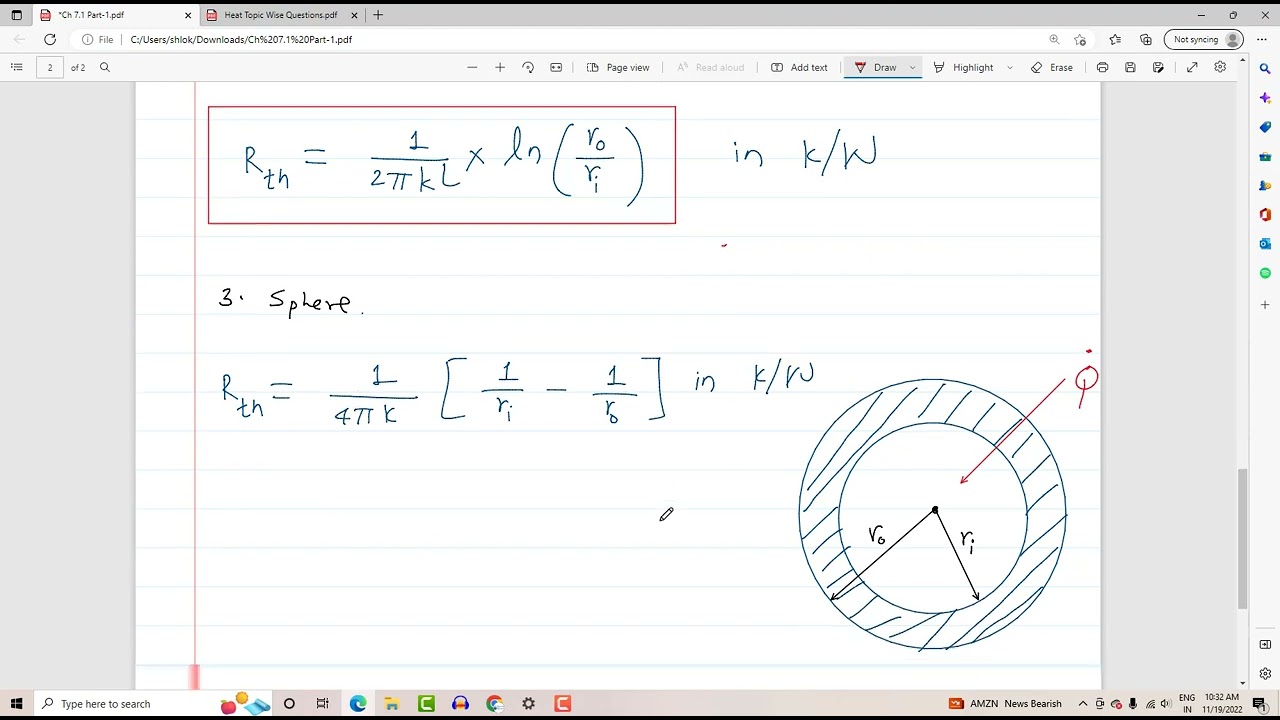 *Ch 7.1 Part-1.pdf
Heat Topic Wise Questions.pdf
File C:/Users/shlok/Downloads/Ch%207.1%20Part-1.pdf
Not syncing
2 of 2
Page view
Read aloud
Add text
Draw
Highlight
Erase
R_th = 1/(2πkL) × ln(r_o/r_i) in K/W
3. Sphere.
R_th = 1/(4πk) [1/r_i − 1/r_o] in K/W
Q̇
r_o
r_i
Type here to search
AMZN News Bearish
ENG
IN
10:32 AM
11/19/2022